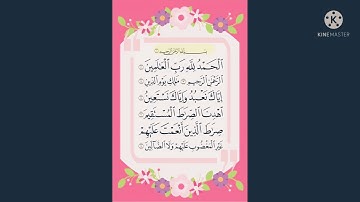 بِسْمِ اللَّهِ الرَّحْمَٰنِ الرَّحِيمِ
الْحَمْدُ لِلَّهِ رَبِّ الْعَالَمِينَ
الرَّحْمَٰنِ الرَّحِيمِ مَالِكِ يَوْمِ الدِّينِ
إِيَّاكَ نَعْبُدُ وَإِيَّاكَ نَسْتَعِينُ
اهْدِنَا الصِّرَاطَ الْمُسْتَقِيمَ
صِرَاطَ الَّذِينَ أَنْعَمْتَ عَلَيْهِمْ
غَيْرِ الْمَغْضُوبِ عَلَيْهِمْ وَلَا الضَّالِّينَ
Made with
KINEMASTER